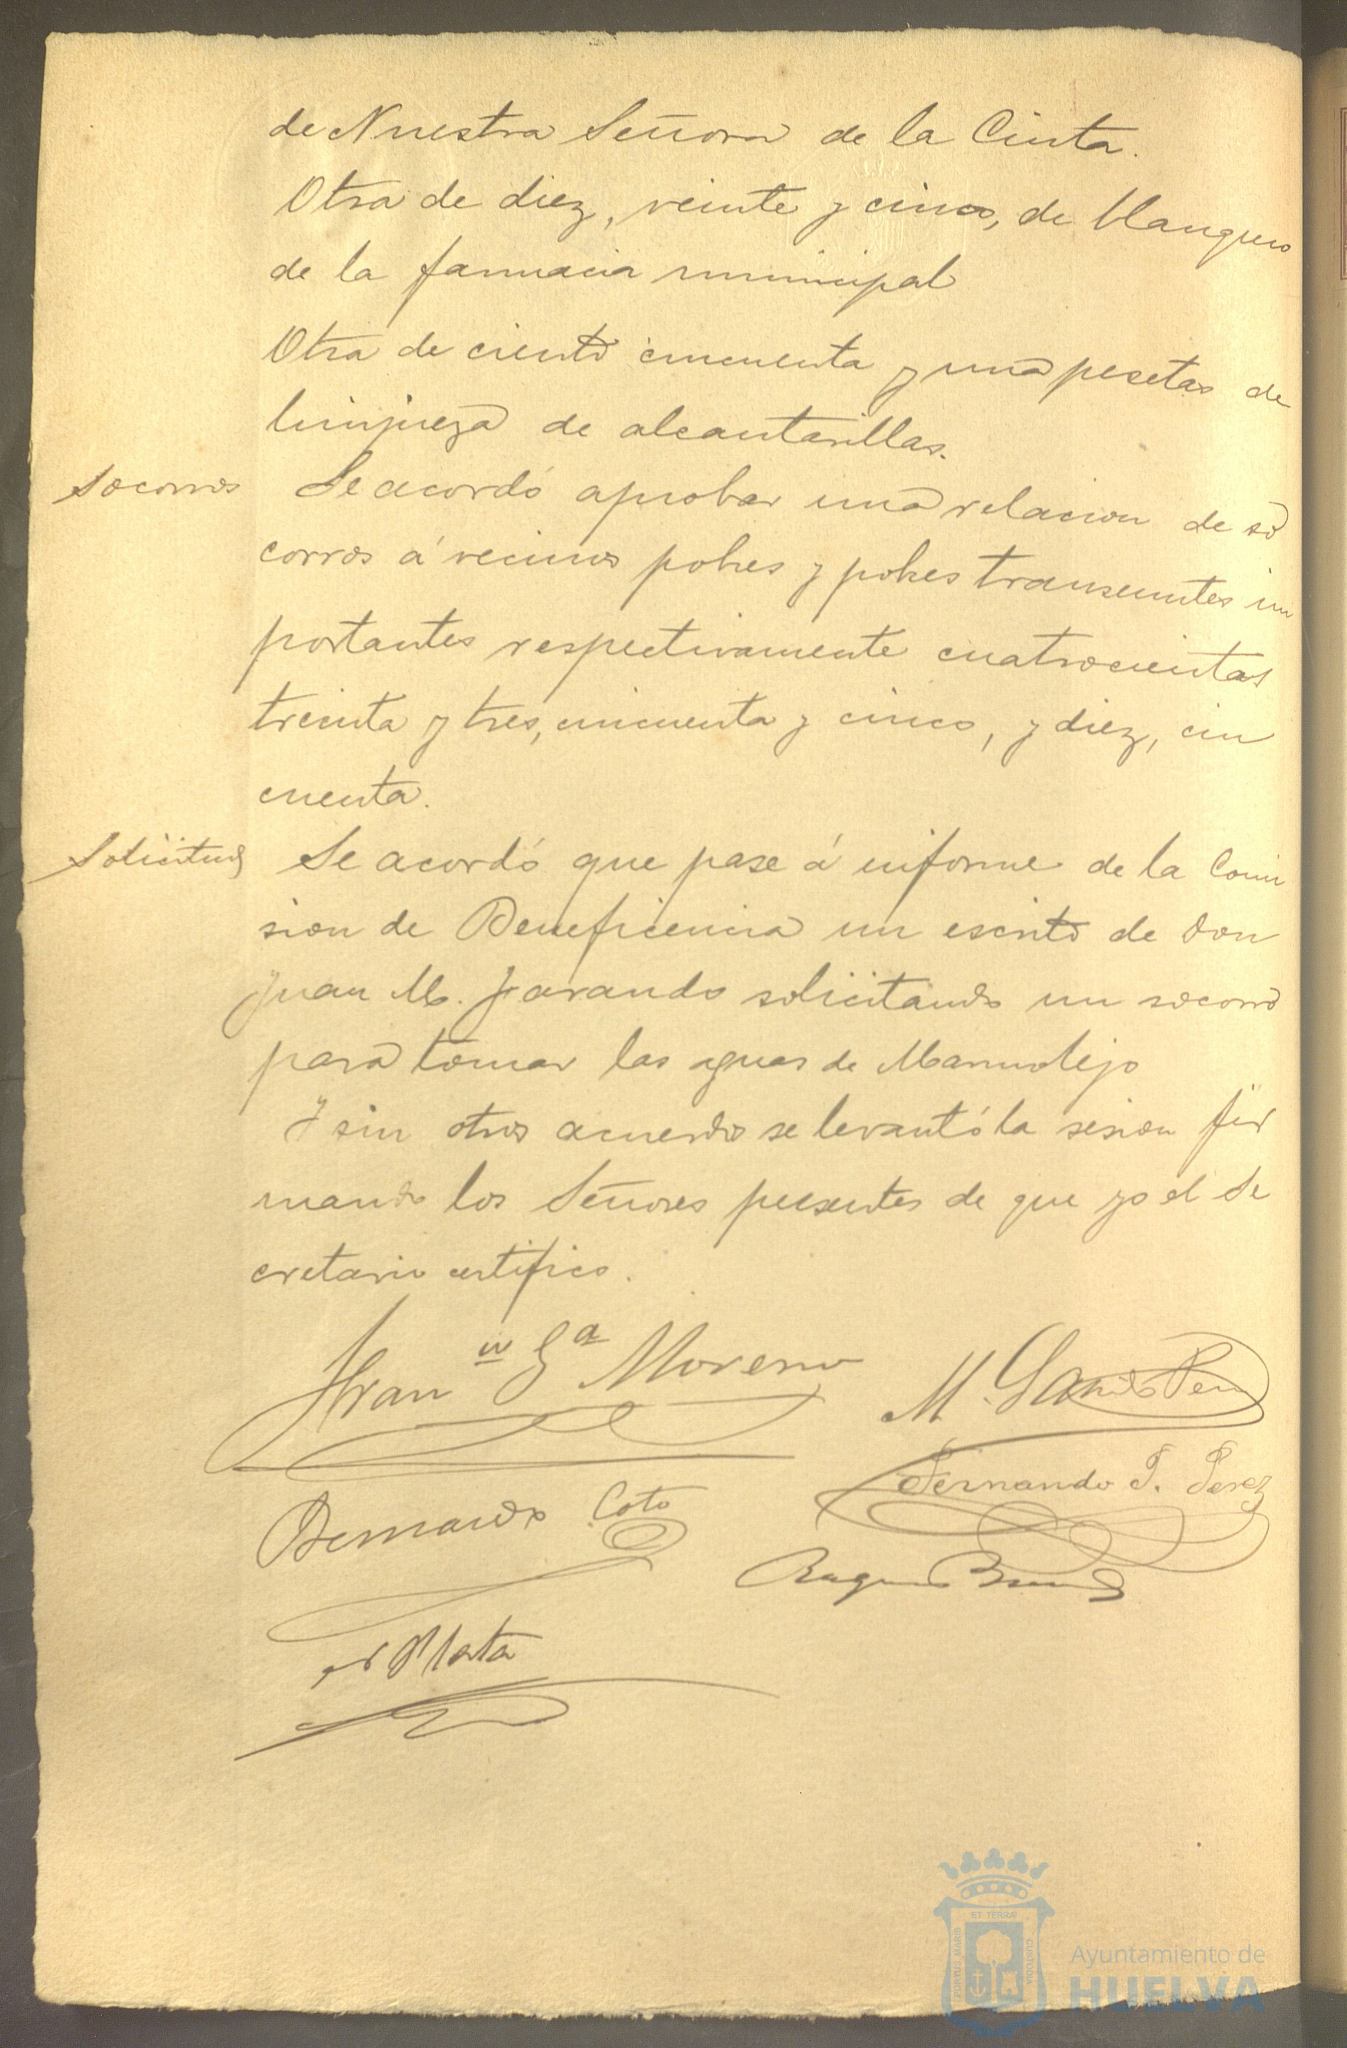 de Nuestra Señora de la Cinta.
Otra de diez, veinte y cinco, de blanqueo
de la farmacia municipal
Otra de ciento cincuenta y una pesetas de
limpieza de alcantarillas.
Socorros Se acordó aprobar una relacion de so
corros á vecinos pobres y pobres transeuntes im
portantes respectivamente cuatrocientas
treinta y tres, cincuenta y cinco, y diez, cin
cuenta.
Solicitud Se acordó que pase á informe de la Comi
sion de Beneficencia un escrito de Don
Juan M. Jarando solicitando un socorro
para tomar las aguas de Marmolejo
Y sin otros acuerdos se levantó la sesion fir
mando los Señores presentes de que yo el Se
cretario certifico.
Fran co Ga Moreno
M.
Fernando T. Perez
Bernardo Coto
Mata
PORTUS MARIS ET TERRAE CUSTODIA
Ayuntamiento de
HUELVA